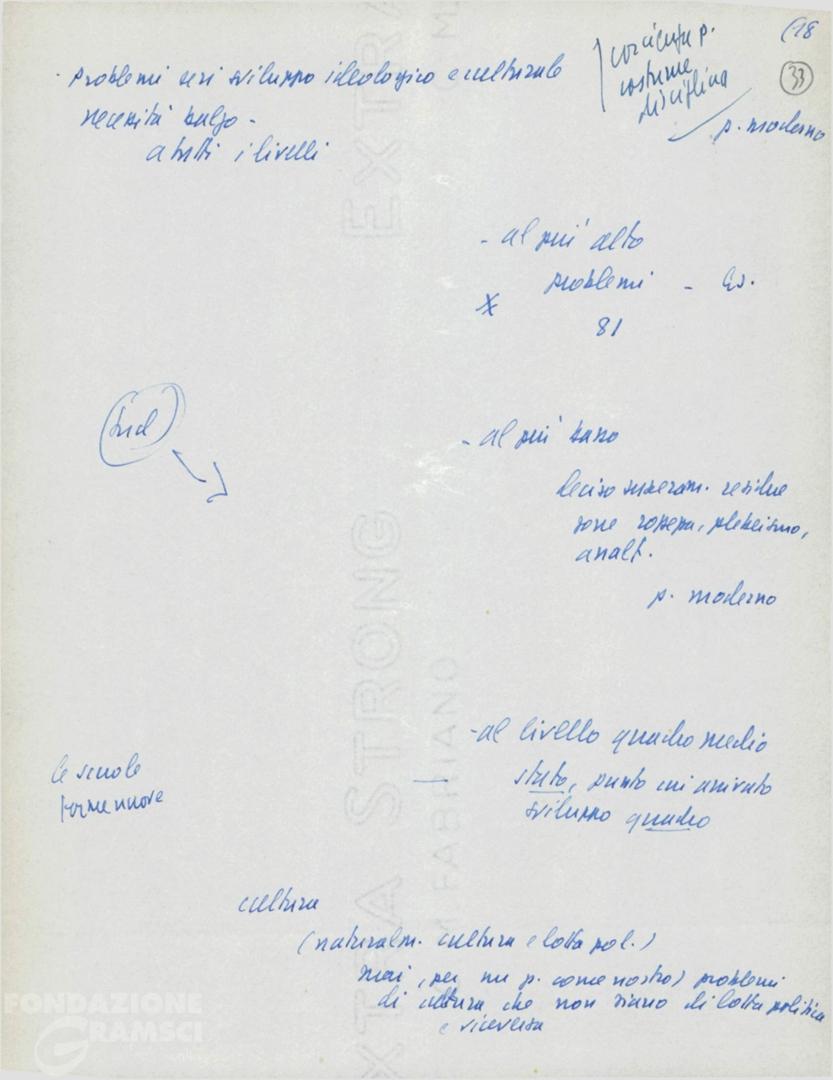 (18
33
coscienza p.
costume
disciplina
p. moderno
- problemi seri sviluppo ideologico e culturale
necessità balzo -
a tutti i livelli
- al più alto
problemi - Es.
x 81
- al più basso
deciso superam. residue
zone rozzezza, plebeismo,
analf.
p. moderno
- al livello quadro medio
stato, punto cui arrivato
sviluppo quadro
le scuole
forme nuove
cultura
(naturalm. cultura e lotta pol.)
mai, per un p. come nostro) problemi
di cultura che non siano di lotta politica
e viceversa
EXTRA STRONG
M. FABRIANO
EXTRA
FONDAZIONE
GRAMSCI